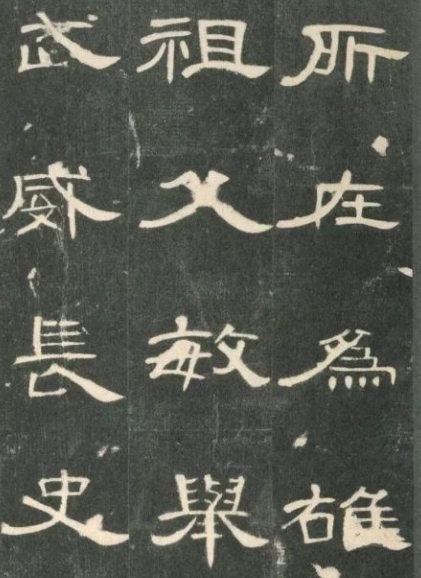 所在為雄
祖父敏舉
武威長史